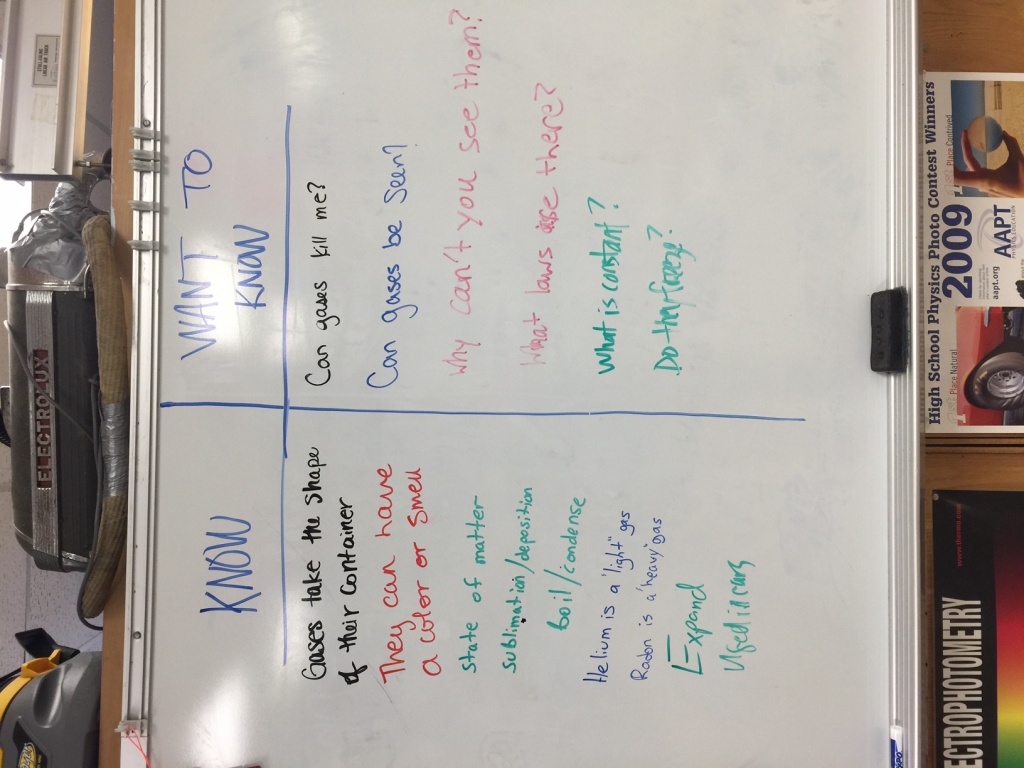 KNOW
Gases take the shape
of their container
They can have
a color or smell
state of matter
sublimation/deposition
boil/condense
Helium is a "light" gas
Radon is a "heavy" gas
Expand
Used in cars
WANT TO
KNOW
Can gases kill me?
Can gases be seen?
Why can't you see them?
What laws are there?
What is constant?
Do they freeze?
ELECTROLUX
High School Physics Photo Contest Winners
2009
AAPT
aapt.org
Place Contrived
Place Natural
ECTROPHOTOMETRY
EXPO